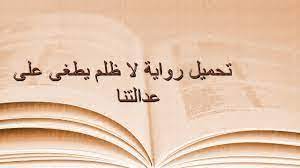 تحميل رواية لا ظلم يطغى على
عدالتنا